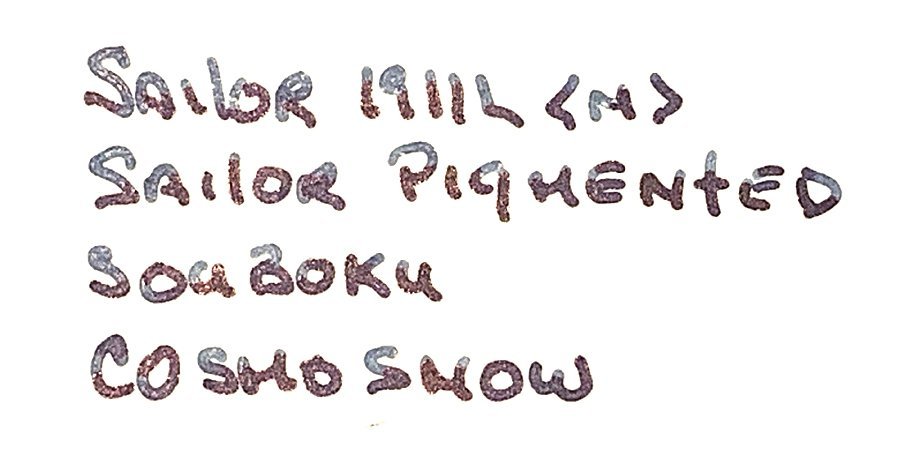 SAILOR 1911L <M>
SAILOR PIGMENTED
SOUBOKU
COSMO SNOW